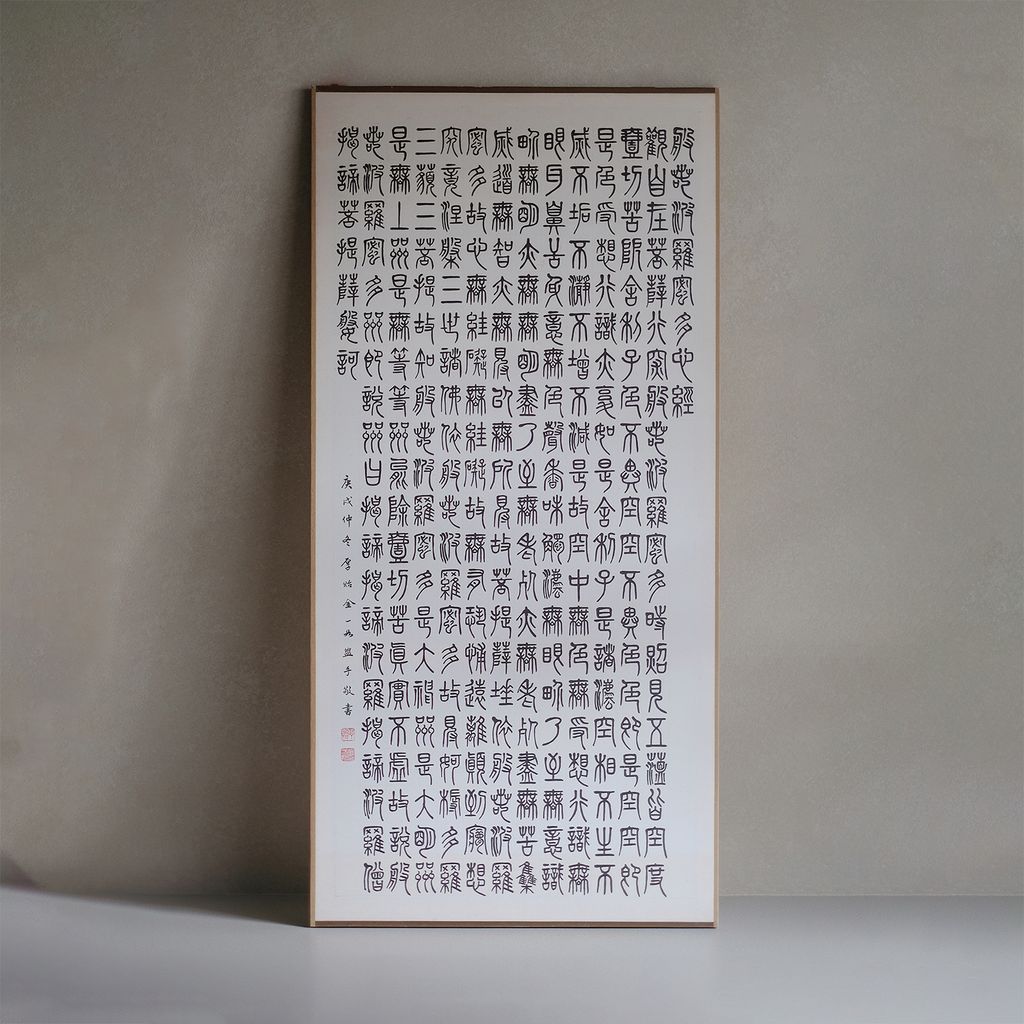 般若波羅蜜多心經
觀自在菩薩行深般若波羅蜜多時照見五蘊皆空度
壹切苦厄舍利子色不異空空不異色色即是空空即
是色受想行識亦復如是舍利子是諸法空相不生不
滅不垢不淨不增不減是故空中無色無受想行識無
眼耳鼻舌身意無色聲香味觸法無眼界乃至無意識
界無明亦無無明盡乃至無老死亦無老死盡無苦集
滅道無智亦無得以無所得故菩提薩埵依般若波羅
蜜多故心無罣礙無罣礙故無有恐怖遠離顛倒夢想
究竟涅槃三世諸佛依般若波羅蜜多故得阿耨多羅
三藐三菩提故知般若波羅蜜多是大神咒是大明咒
是無上咒是無等等咒能除壹切苦真實不虛故說般
若波羅蜜多咒即說咒曰揭諦揭諦波羅揭諦波羅僧
揭諦菩提薩婆訶
庚戌仲冬 怡金一 盥手敬書